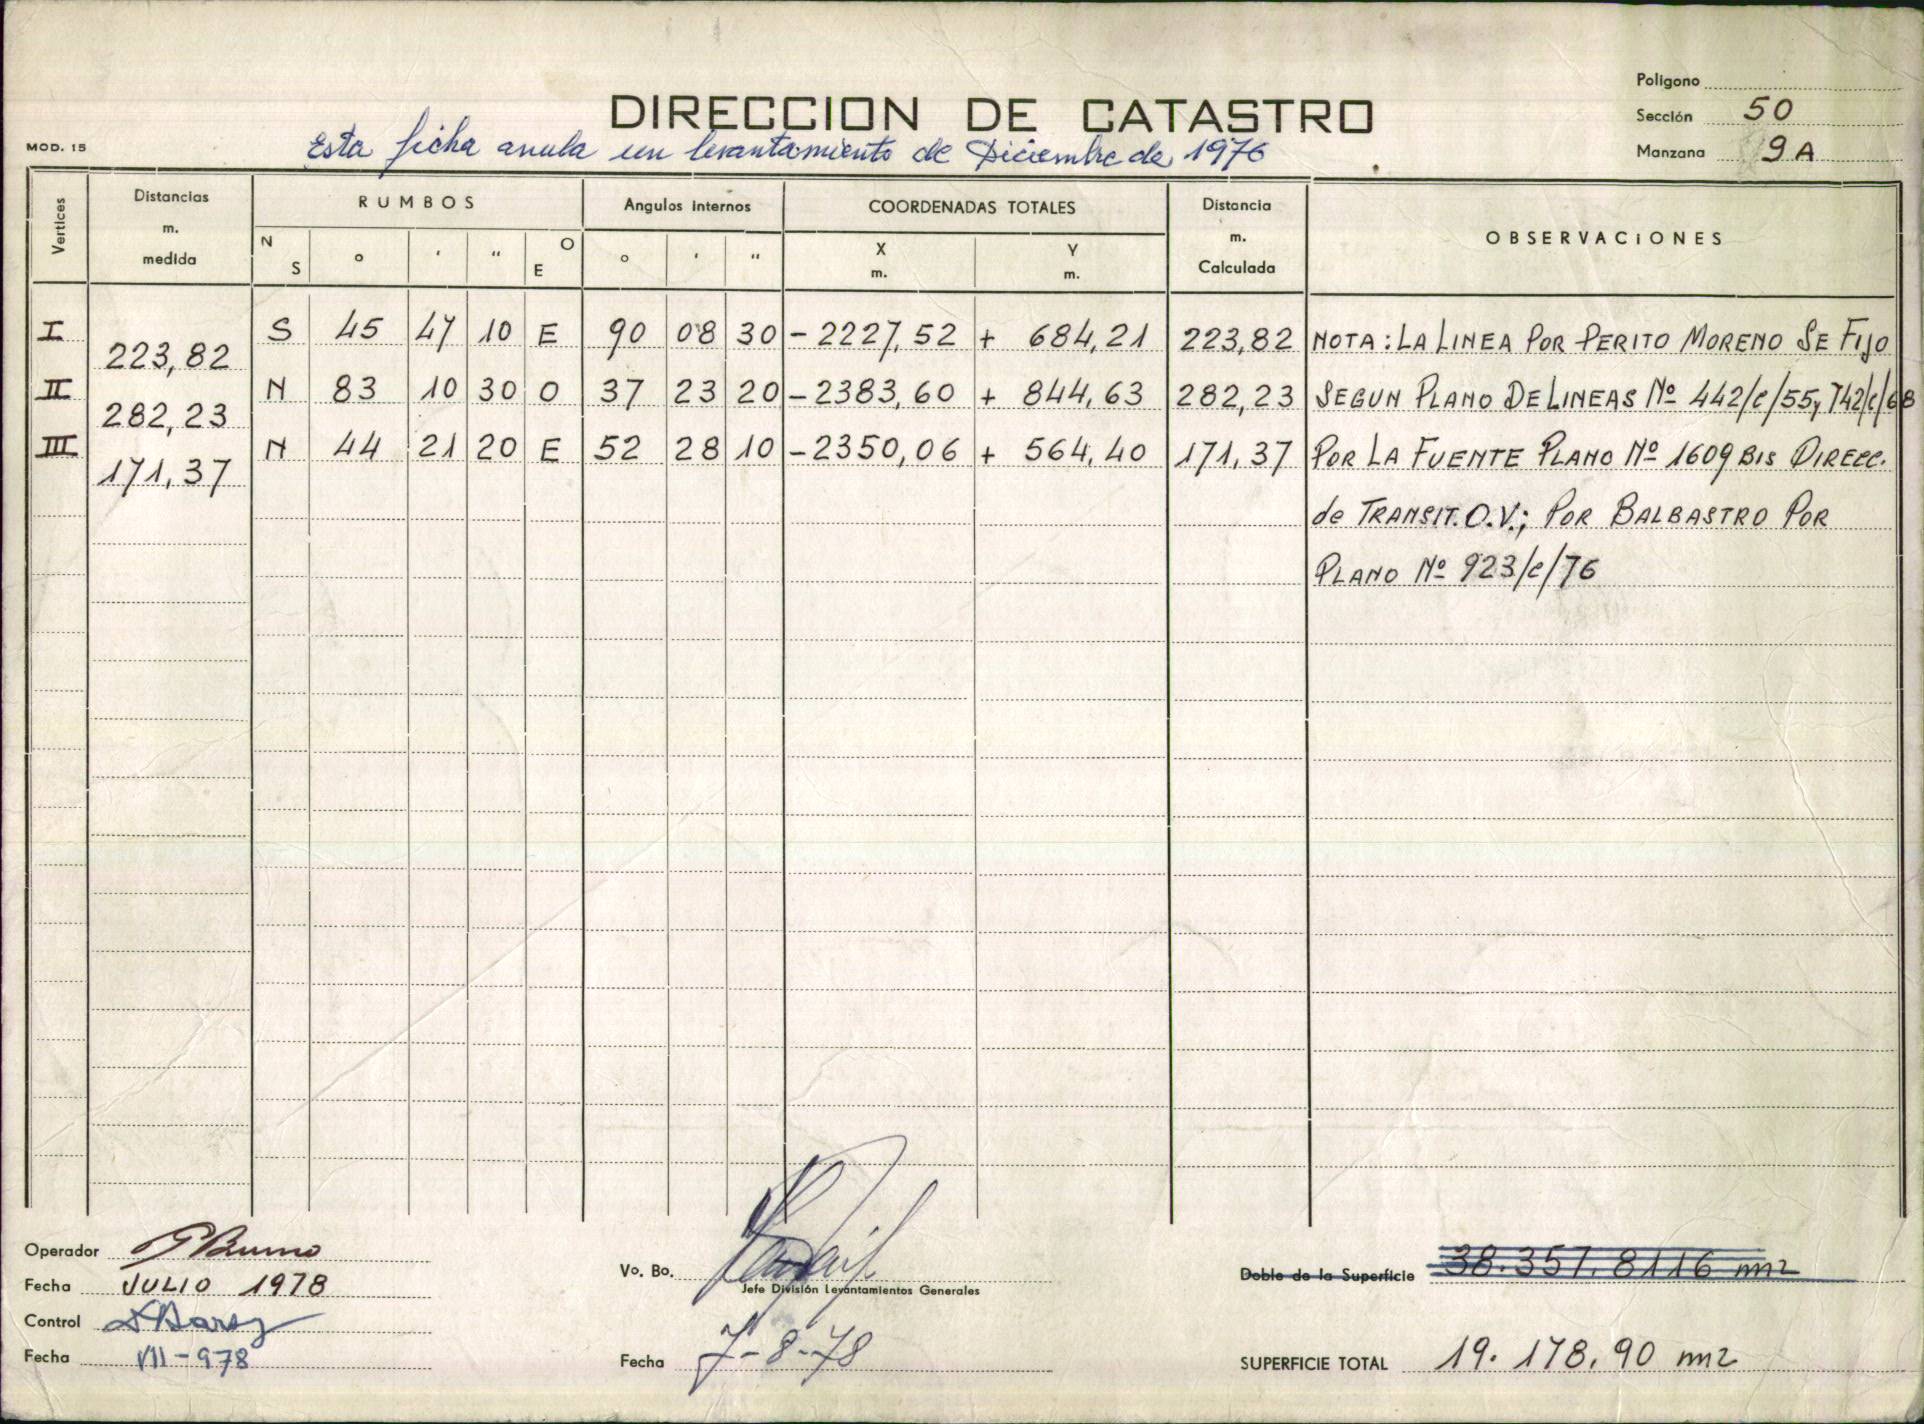 Poligono
DIRECCION DE CATASTRO
Sección 50
MOD. 15
Esta ficha anula un levantamiento de Diciembre de 1976
Manzana 9 A
Vertices
Distancias m. medida
RUMBOS
Angulos internos
COORDENADAS TOTALES
Distancia m. Calculada
OBSERVACiONES
N S ° ' " O E ° ' " X m. Y m.
I 223,82 S 45 47 10 E 90 08 30 - 2227,52 + 684,21 223,82 NOTA: LA LINEA POR PERITO MORENO SE FIJO
II 282,23 N 83 10 30 O 37 23 20 - 2383,60 + 844,63 282,23 SEGUN PLANO DE LINEAS Nº 442/C/55 y 742/C/68
III 171,37 N 44 21 20 E 52 28 10 - 2350,06 + 564,40 171,37 POR LA FUENTE PLANO Nº 1609 BIS DIRECC.
de TRANSIT. O.V.; POR BALBASTRO POR
PLANO Nº 923/C/76
Operador G Bruno
Fecha JULIO 1978
Control
Fecha VII-978
Vo. Bo.
Jefe División Levantamientos Generales
Fecha 7-8-78
Doble de la Superficie 38.357.8116 m2
SUPERFICIE TOTAL 19.178,90 m2